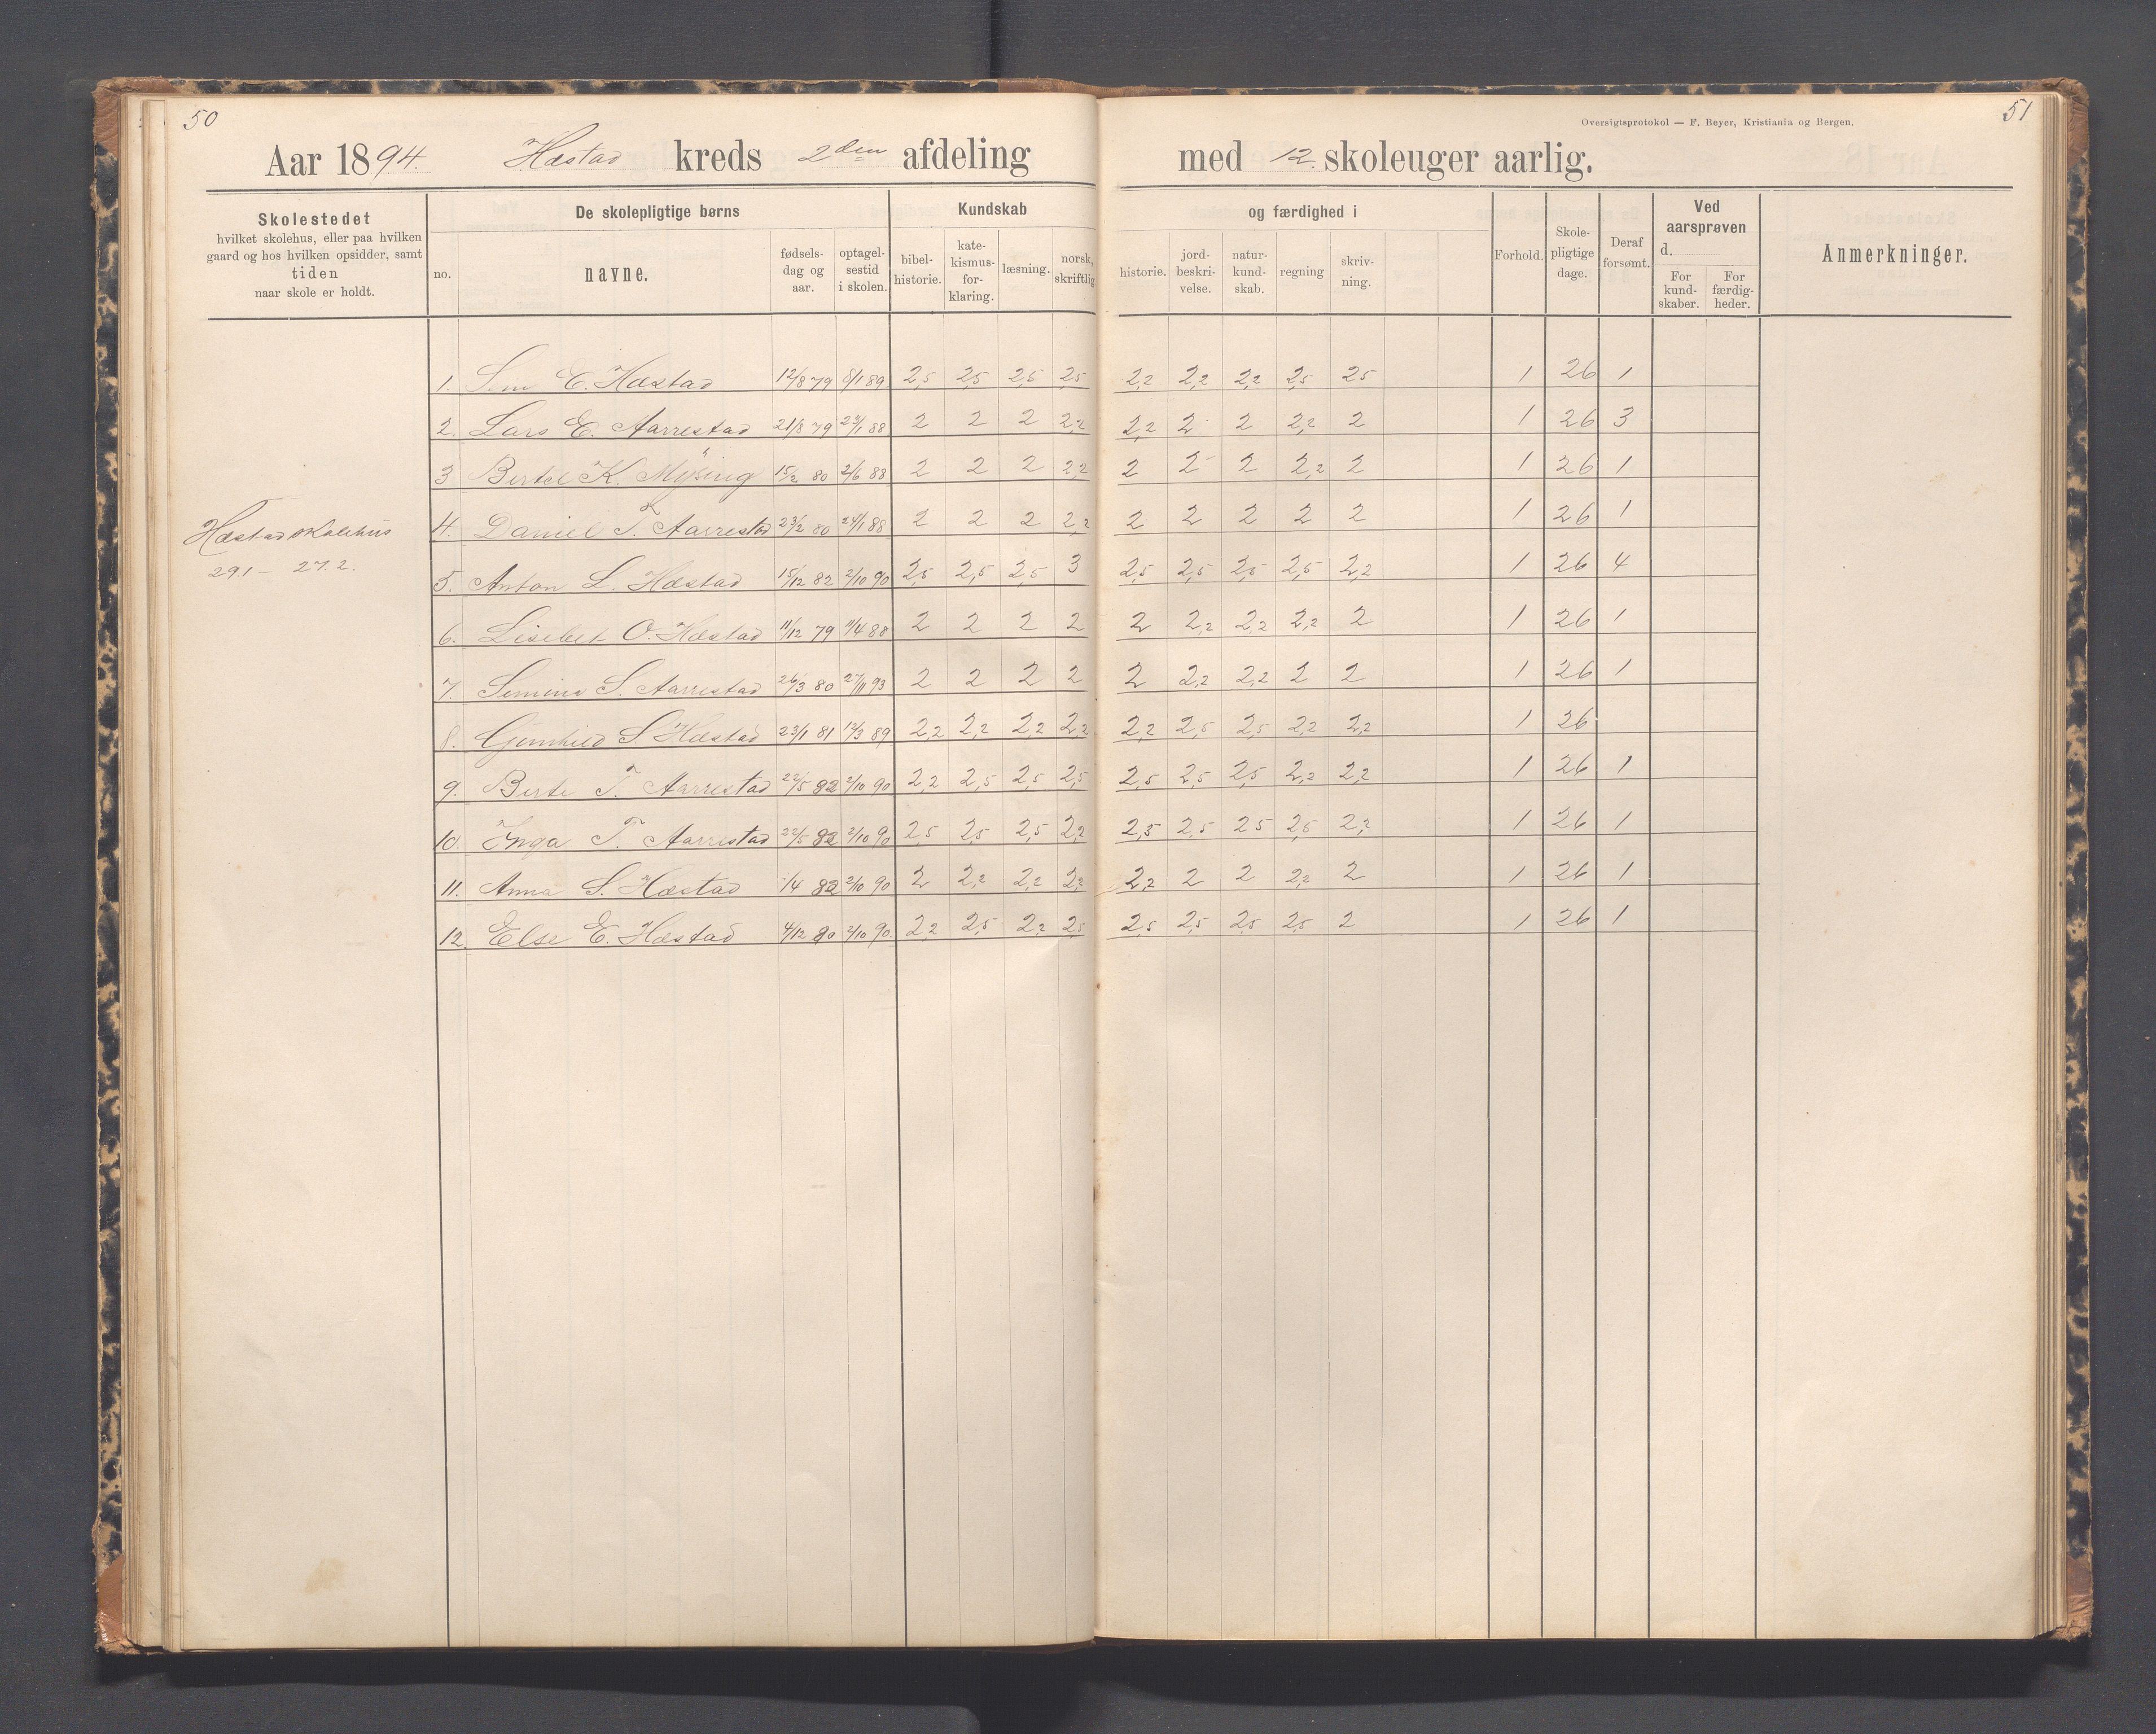 50
51
Oversigtsprotokol — F. Beyer, Kristiania og Bergen.
Aar 1894. Hæstad kreds 2den afdeling med 12. skoleuger aarlig.
Skolestedet
hvilket skolehus, eller paa hvilken
gaard og hos hvilken opsidder, samt
tiden
naar skole er holdt.
De skolepligtige børns
no.
navne.
fødsels-
dag og
aar.
optagel-
sestid
i skolen.
Kundskab
bibel-
historie.
kate-
kismus-
for-
klaring.
læsning.
norsk,
skriftlig
og færdighed i
historie.
jord-
beskri-
velse.
natur-
kund-
skab.
regning
skriv-
ning.
Forhold.
Skole-
pligtige
dage.
Deraf
forsømt.
Ved
aarsprøven
d.
For
kund-
skaber.
For
færdig-
heder.
Anmerkninger.
Hæstad skolehus
29.1 — 27.2.
1. E. Hæstad 12/8 79 8/1 89 2,5 2,5 2,5 2,5 2,2 2,2 2,2 2,5 2,5 1 26 1
2. Lars E. Aarrestad 21/8 79 23/1 88 2 2 2 2,2 2,2 2 2 2,2 2 1 26 3
3 Bertel K. Mysing 15/2 80 2/6 88 2 2 2 2,2 2 2 2 2,2 2 1 26 1
4. Daniel T. Aarrestad 23/2 80 24/1 88 2 2 2 2,2 2 2 2 2 2 1 26 1
5. Anton L. Hæstad 15/12 82 2/10 90 2,5 2,5 2,5 3 2,5 2,5 2,5 2,5 2,2 1 26 4
6. Lisebet O. Hæstad 11/12 79 11/4 88 2 2 2 2 2 2,2 2,2 2,2 2 1 26 1
7. Semine S. Aarrestad 26/3 80 27/11 93 2 2 2 2 2 2,2 2,2 2 2 1 26 1
8. Gunhild S. Hæstad 23/1 81 12/3 89 2,2 2,2 2,2 2,2 2,2 2,5 2,5 2,2 2,2 1 26
9. Berte T. Aarrestad 22/5 82 2/10 90 2,2 2,5 2,5 2,5 2,5 2,5 2,5 2,2 2,2 1 26 1
10. Inga T. Aarrestad 22/5 82 2/10 90 2,5 2,5 2,5 2,2 2,5 2,5 2,5 2,5 2,2 1 26 1
11. Anna S. Hæstad 1/4 82 2/10 90 2 2,2 2,2 2,2 2,2 2 2 2,2 2 1 26 1
12. Else E. Hæstad 4/12 80 2/10 90 2,2 2,5 2,2 2,5 2,5 2,5 2,5 2,5 2 1 26 1